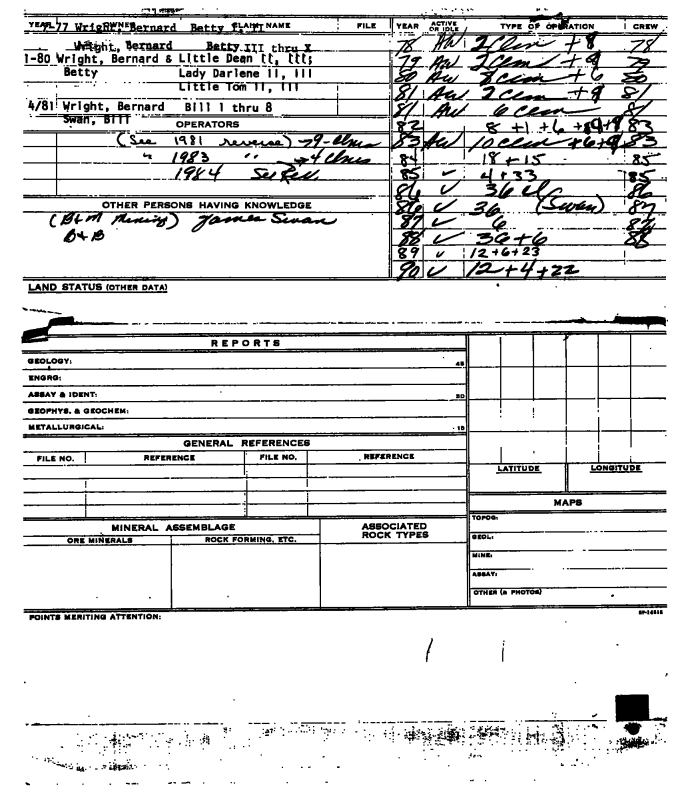 YEAR OWNER CLAIM NAME FILE
7-77 Wright, Bernard Betty I, II
Wright, Bernard Betty III thru X
1-80 Wright, Bernard & Little Dean II, III;
Betty Lady Darlene II, III
Little Tom II, III
4/81 Wright, Bernard Bill 1 thru 8
Swan, Bill
OPERATORS
(See 1981 reverse) → 9-Clms
" 1983 " → 4 Clms
1984 See Rev.
OTHER PERSONS HAVING KNOWLEDGE
(B&M Mining) James Swan
B&B
YEAR ACTIVE OR IDLE TYPE OF OPERATION CREW
78 AW 2 Clem +8 78
79 AW 2 Clem +9 79
80 AW 8 Clem +6 80
81 AW 2 Clem +9 81
81 AW 6 Clem 81
82 8 +1 +6 83
83 AW 10 Clem +6+9 83
84 18 + 15 85
85 ✓ 4 + 33 85
86 ✓ 36 Cl 86
86 ✓ 36 (Swan) 87
87 ✓ 6
88 ✓ 36+6 88
89 ✓ 12+6+23
90 ✓ 12+4+22
LAND STATUS (OTHER DATA)
REPORTS
GEOLOGY: 45
ENGRG:
ASSAY & IDENT: 30
GEOPHYS. & GEOCHEM:
METALLURGICAL: 15
GENERAL REFERENCES
FILE NO. REFERENCE FILE NO. REFERENCE
LATITUDE LONGITUDE
MAPS
TOPOG:
GEOL:
MINE:
ASSAY:
OTHER (& PHOTOS)
MINERAL ASSEMBLAGE
ORE MINERALS ROCK FORMING, ETC.
ASSOCIATED ROCK TYPES
POINTS MERITING ATTENTION: